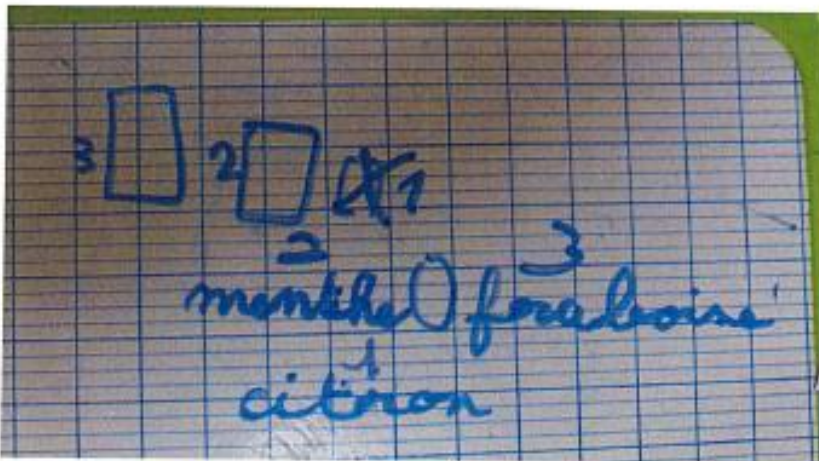 3 2 1
2 3
menthe fraboise
1
citron